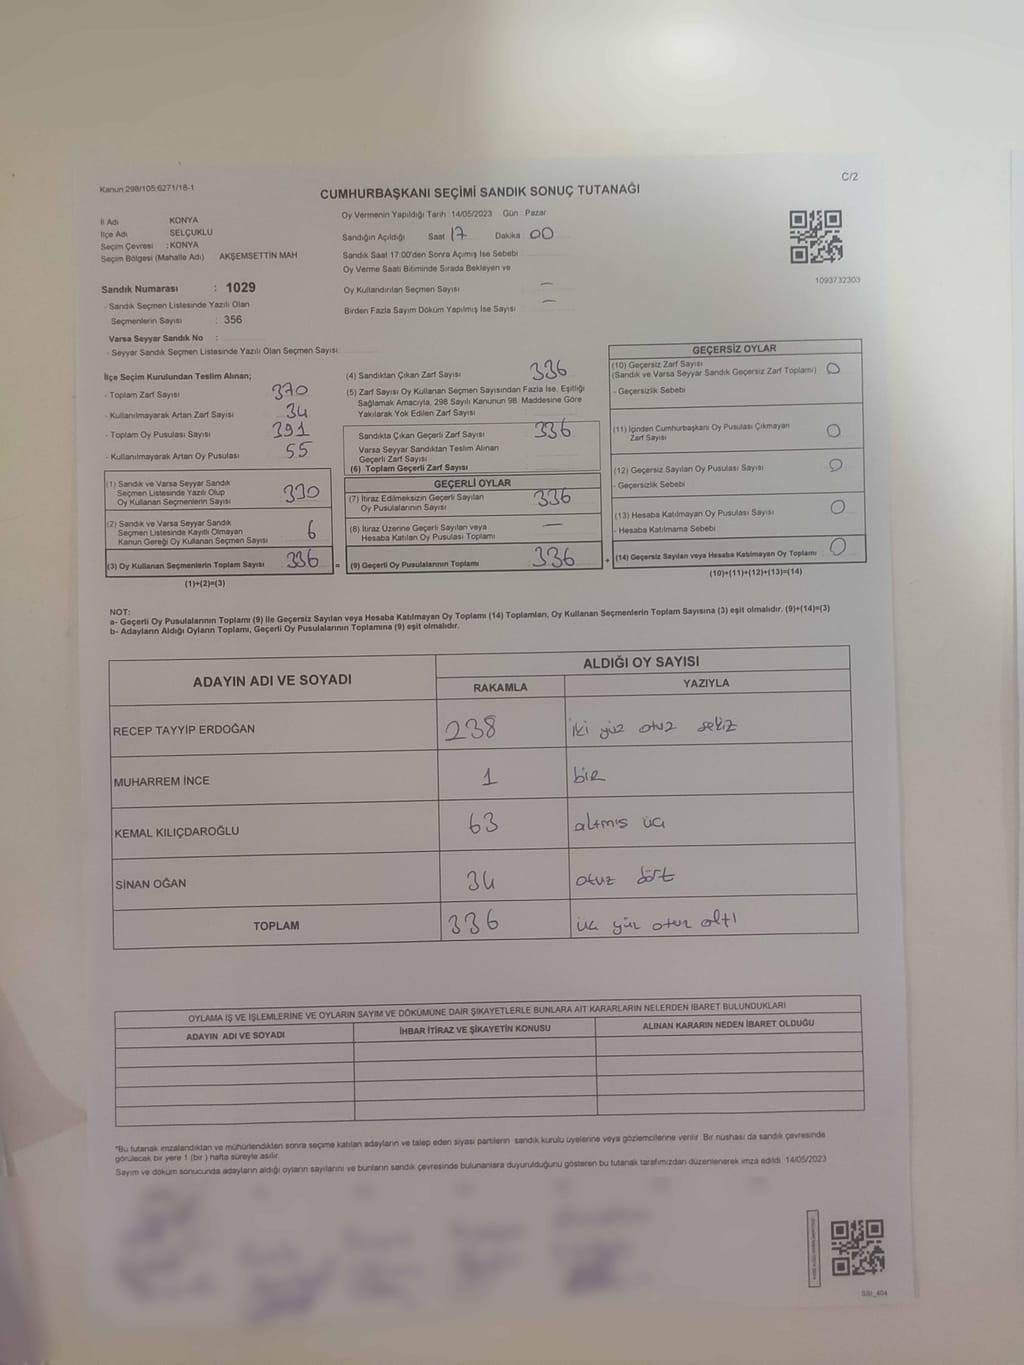 Kanun:298/105;6271/18-1
C/2
CUMHURBAŞKANI SEÇİMİ SANDIK SONUÇ TUTANAĞI
İl Adı KONYA
İlçe Adı SELÇUKLU
Seçim Çevresi : KONYA
Seçim Bölgesi (Mahalle Adı) AKŞEMSETTİN MAH
Sandık Numarası : 1029
- Sandık Seçmen Listesinde Yazılı Olan
Seçmenlerin Sayısı : 356
Varsa Seyyar Sandık No :
- Seyyar Sandık Seçmen Listesinde Yazılı Olan Seçmen Sayısı:
Oy Vermenin Yapıldığı Tarih : 14/05/2023 Gün : Pazar
Sandığın Açıldığı Saat 17 Dakika 00
Sandık Saat 17:00'den Sonra Açımış İse Sebebi
Oy Verme Saati Bitiminde Sırada Bekleyen ve
Oy Kullandırılan Seçmen Sayısı —
Birden Fazla Sayım Döküm Yapılmış İse Sayısı —
1093732303
İlçe Seçim Kurulundan Teslim Alınan;
- Toplam Zarf Sayısı 370
- Kullanılmayarak Artan Zarf Sayısı 34
- Toplam Oy Pusulası Sayısı 391
- Kullanılmayarak Artan Oy Pusulası 55
(1) Sandık ve Varsa Seyyar Sandık
Seçmen Listesinde Yazılı Olup
Oy Kullanan Seçmenlerin Sayısı 330
(2) Sandık ve Varsa Seyyar Sandık
Seçmen Listesinde Kayıtlı Olmayan
Kanun Gereği Oy Kullanan Seçmen Sayısı 6
(3) Oy Kullanan Seçmenlerin Toplam Sayısı 336
=
(1)+(2)=(3)
(4) Sandıktan Çıkan Zarf Sayısı 336
(5) Zarf Sayısı Oy Kullanan Seçmen Sayısından Fazla İse, Eşitliği
Sağlamak Amacıyla, 298 Sayılı Kanunun 98. Maddesine Göre
Yakılarak Yok Edilen Zarf Sayısı
Sandıkta Çıkan Geçerli Zarf Sayısı 336
Varsa Seyyar Sandıktan Teslim Alınan
Geçerli Zarf Sayısı
(6) Toplam Geçerli Zarf Sayısı
GEÇERLİ OYLAR
(7) İtiraz Edilmeksizin Geçerli Sayılan
Oy Pusulalarının Sayısı 336
(8) İtiraz Üzerine Geçerli Sayılan veya
Hesaba Katılan Oy Pusulası Toplamı —
(9) Geçerli Oy Pusulalarının Toplamı 336
+
GEÇERSİZ OYLAR
(10) Geçersiz Zarf Sayısı
(Sandık ve Varsa Seyyar Sandık Geçersiz Zarf Toplamı) 0
- Geçersizlik Sebebi
(11) İçinden Cumhurbaşkanı Oy Pusulası Çıkmayan
Zarf Sayısı 0
(12) Geçersiz Sayılan Oy Pusulası Sayısı 0
- Geçersizlik Sebebi
(13) Hesaba Katılmayan Oy Pusulası Sayısı 0
- Hesaba Katılmama Sebebi
(14) Geçersiz Sayılan veya Hesaba Katılmayan Oy Toplamı 0
(10)+(11)+(12)+(13)=(14)
NOT:
a- Geçerli Oy Pusulalarının Toplamı (9) ile Geçersiz Sayılan veya Hesaba Katılmayan Oy Toplamı (14) Toplamları, Oy Kullanan Seçmenlerin Toplam Sayısına (3) eşit olmalıdır. (9)+(14)=(3)
b- Adayların Aldığı Oyların Toplamı, Geçerli Oy Pusulalarının Toplamına (9) eşit olmalıdır.
ADAYIN ADI VE SOYADI ALDIĞI OY SAYISI
RAKAMLA YAZIYLA
RECEP TAYYİP ERDOĞAN 238 iki yüz otuz sekiz
MUHARREM İNCE 1 bir
KEMAL KILIÇDAROĞLU 63 altmış üç
SİNAN OĞAN 34 otuz dört
TOPLAM 336 üç yüz otuz altı
OYLAMA İŞ VE İŞLEMLERİNE VE OYLARIN SAYIM VE DÖKÜMÜNE DAİR ŞİKAYETLERLE BUNLARA AİT KARARLARIN NELERDEN İBARET BULUNDUKLARI
ADAYIN ADI VE SOYADI İHBAR İTİRAZ VE ŞİKAYETİN KONUSU ALINAN KARARIN NEDEN İBARET OLDUĞU
"Bu tutanak imzalandıktan ve mühürlendikten sonra seçime katılan adayların ve talep eden siyasi partilerin sandık kurulu üyelerine veya gözlemcilerine verilir. Bir nüshası da sandık çevresinde
görülecek bir yere 1 (bir ) hafta süreyle asılır.
Sayım ve döküm sonucunda adayların aldığı oyların sayılarını ve bunların sandık çevresinde bulunanlara duyurulduğunu gösteren bu tutanak tarafımızdan düzenlenerek imza edildi. 14/05/2023